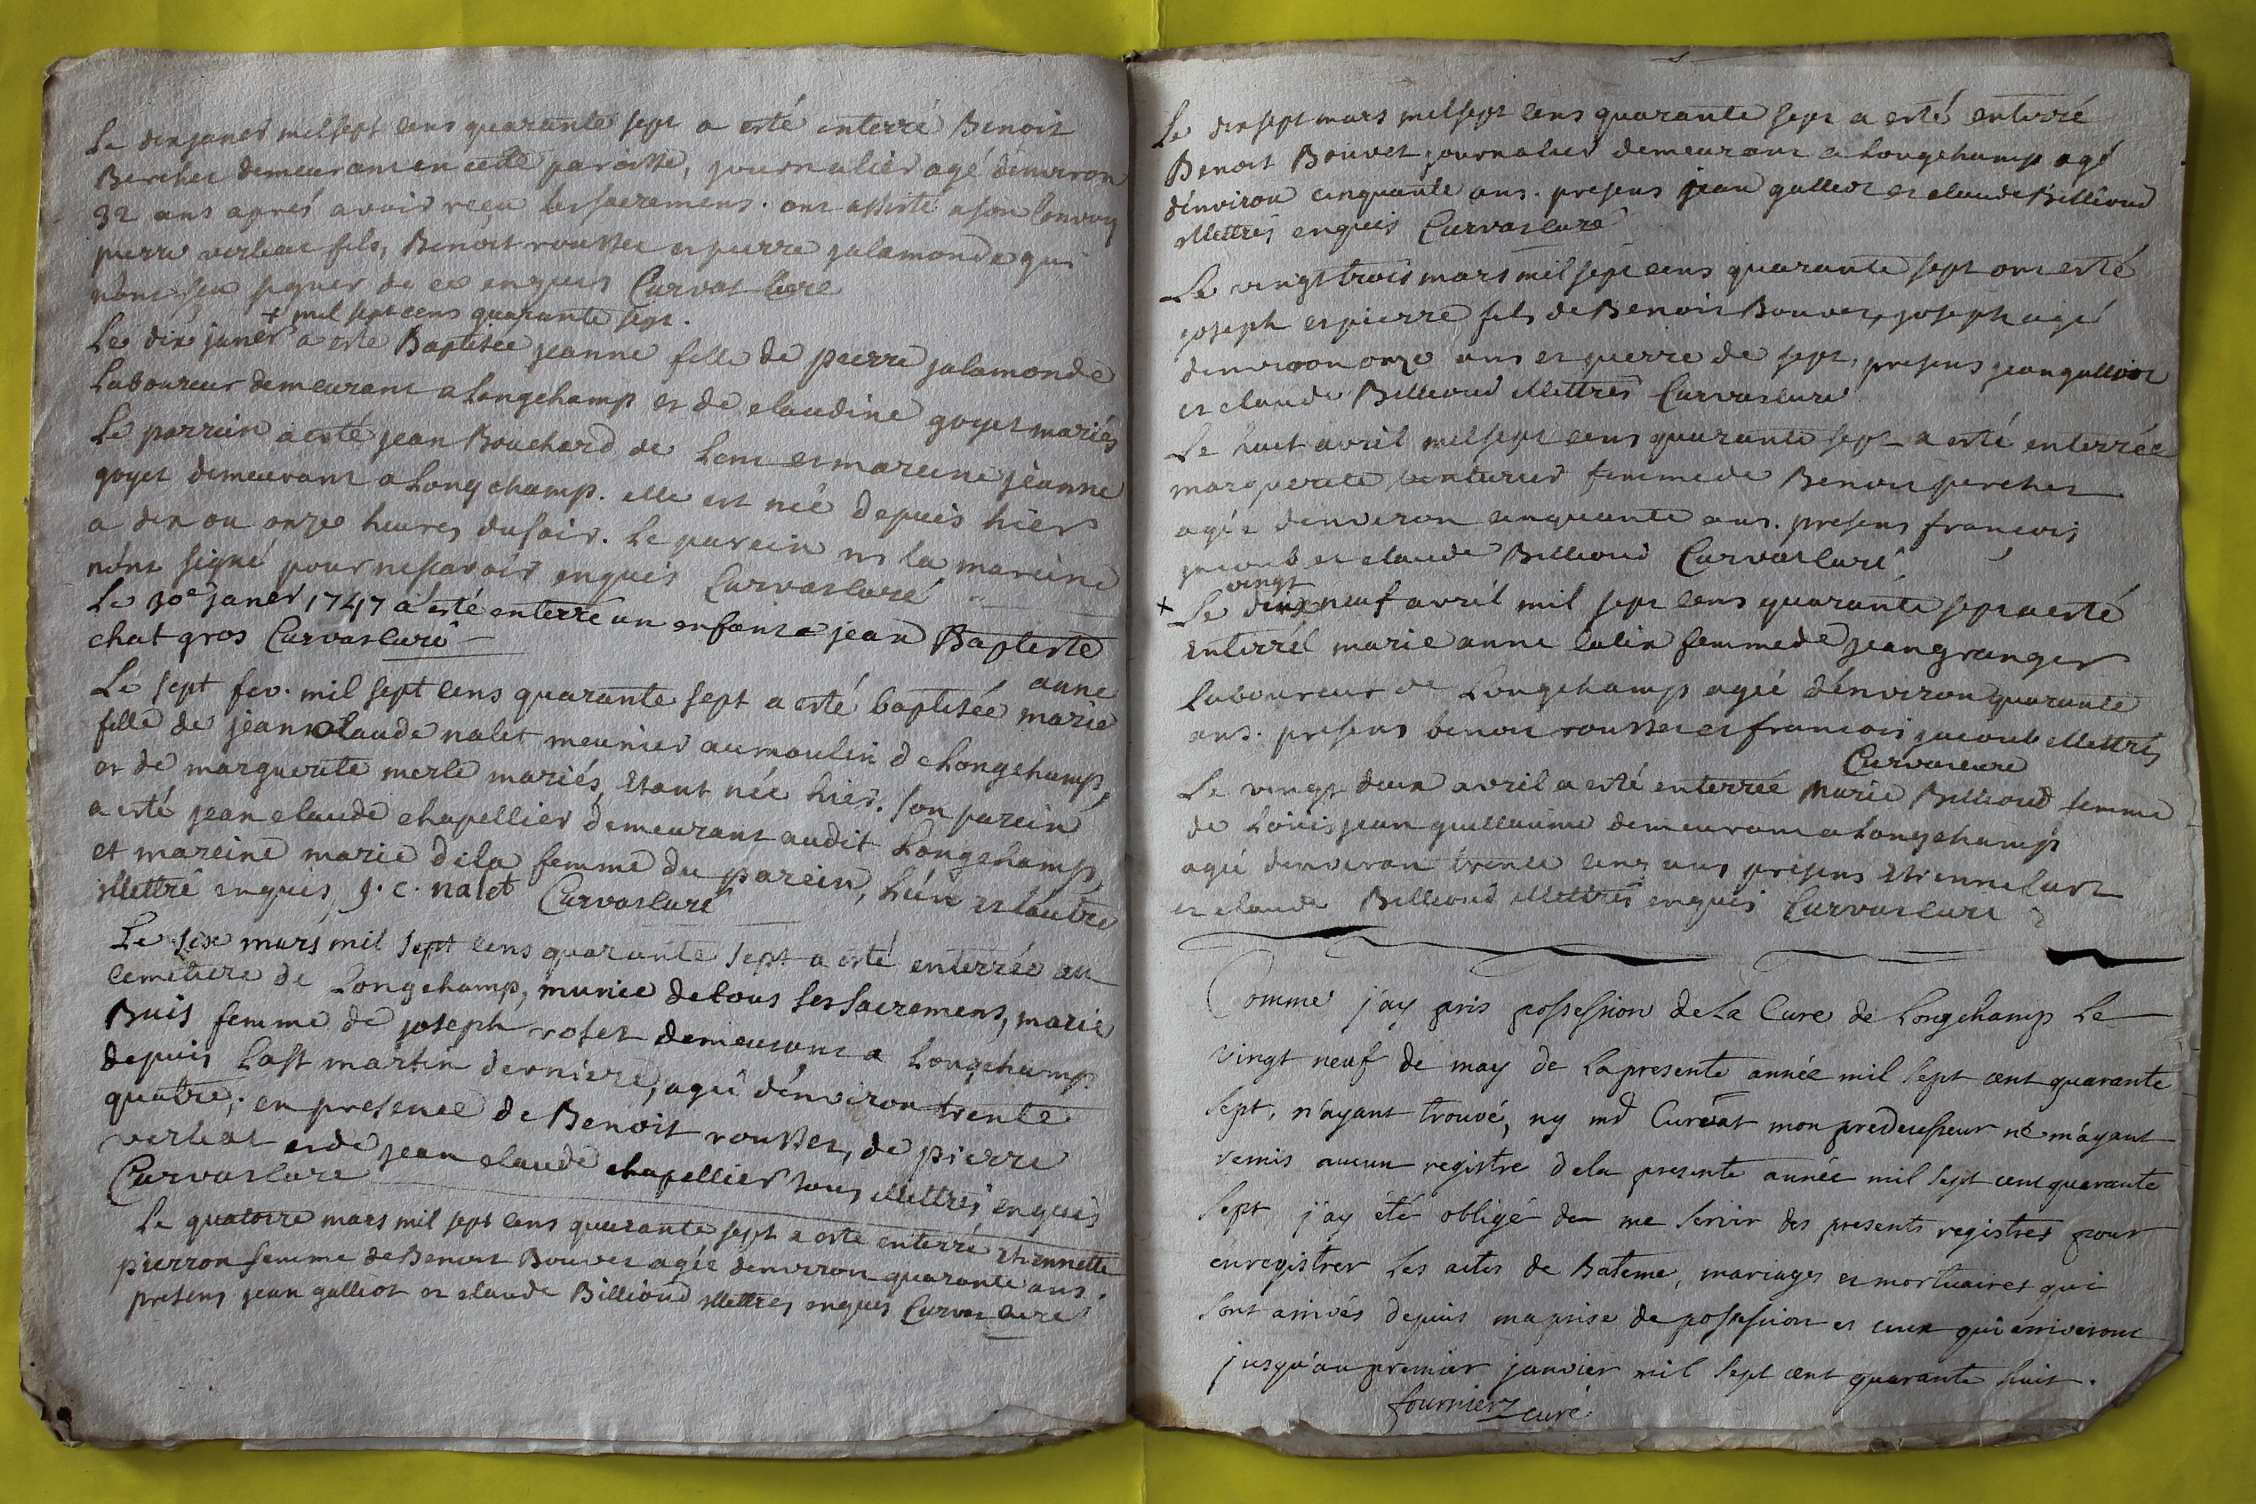 Le dix janer mil sept cens quarante sept a esté enterré Benoit
Berchet demeurant en cette paroisse, journalier agé d'environ
32 ans aprés avoir reçu les sacremens. ont assisté a son convoy
pierre verbeat fils, Benoit rousset et pierre jalamonde qui
n'ont sçu signer de ce enquis Curvat curé
+ mil sept cens quarante sept.
Le dix janer + a esté Baptisée jeanne fille de pierre jalamonde
Laboureur demeurant a Longchamp et de claudine goyet mariés
Le parrein a esté jean Bouchard de Lent et mareine jeanne
goyet demeurant a Longchamp. elle est née depuis hier
a dix ou onze heures du soir. Le parein ni la mareine
n'ont signé pour ne scavoir enquis Curvat curé
Le 30e janer 1747 a esté enterré un enfant a jean Baptiste
chat gros Curvat curé
Le sept fev. mil sept cens quarante sept a esté baptisée marie anne
fille de jean claude nalet meunier au moulin de Longchamp,
et de marguerite merle mariés, etant née hier. son parein
a esté jean claude chapellier demeurant audit Longchamp,
et mareine marie dela femme du parein, l'un et l'autre
illettré enquis, j. c. nalet Curvat curé
Le six mars mil sept cens quarante sept a esté enterrée au
cemetiere de Longchamp, munie de tous ses sacremens, marie
Buis femme de joseph roset demeurant a Longchamp
depuis la st martin derniere, agée d'environ trente
quatre; en presence de Benoit rousset, de pierre
verbeat et de jean claude chapellier tous illettrés enquis
Curvat curé
Le quatorze mars mil sept cens quarante sept a esté enterré etiennette
pierron femme de Benoit Bouvet agée d'environ quarante ans.
presens jean galliot et claude Billioud illettrés enquis Curvat curé
Le dix sept mars mil sept cens quarante sept a esté enterré
Benoit Bouvet journalier demeurant a Longchamp agé
d'environ cinquante ans. presens jean galliot et claude Billioud
illettrés enquis Curvat curé
Le vingt trois mars mil sept cens quarante sept ont esté
joseph et pierre fils de Benoit Bouvet, joseph agé
d'environ onze ans et pierre de sept, presens jean galliot
et claude Billioud illettrés Curvat curé
Le huit avril mil sept cens quarante sept a esté enterrée
marguerite femme de Benoit perchet
agée d'environ cinquante ans. presens francois
jacoub et claude Billioud Curvat curé
vingt
+ Le neuf avril mil sept cens quarante sept a esté
enterré marie anne femme de jean granger
laboureur de Longchamp agée d'environ quarante
ans. presens benoit rousset et francois jacoub illettrés
Curvat curé
Le vingt deux avril a esté enterrée Marie Billioud femme
de Loüis jean guillaume demeurant a Longchamp
agée d'environ trente cinq ans presens etienne
et claude Billioud illettrés enquis Curvat curé
Comme j'ay pris possession de La Cure de Longchamp Le
vingt neuf de may de la presente année mil sept cent quarante
sept, n'ayant trouvé, ny mr Curvat mon predecesseur ne m'ayant
remis aucun registre de la presente année mil sept cent quarante
sept, j'ay été obligé de me servir des presents registres pour
enregistrer Les actes de Bateme, mariages et mortuaires qui
sont arrivés depuis ma prise de possession et ceux qui arriveront
jusqu'au premier janvier mil sept cent quarante huit.
fournier curé.